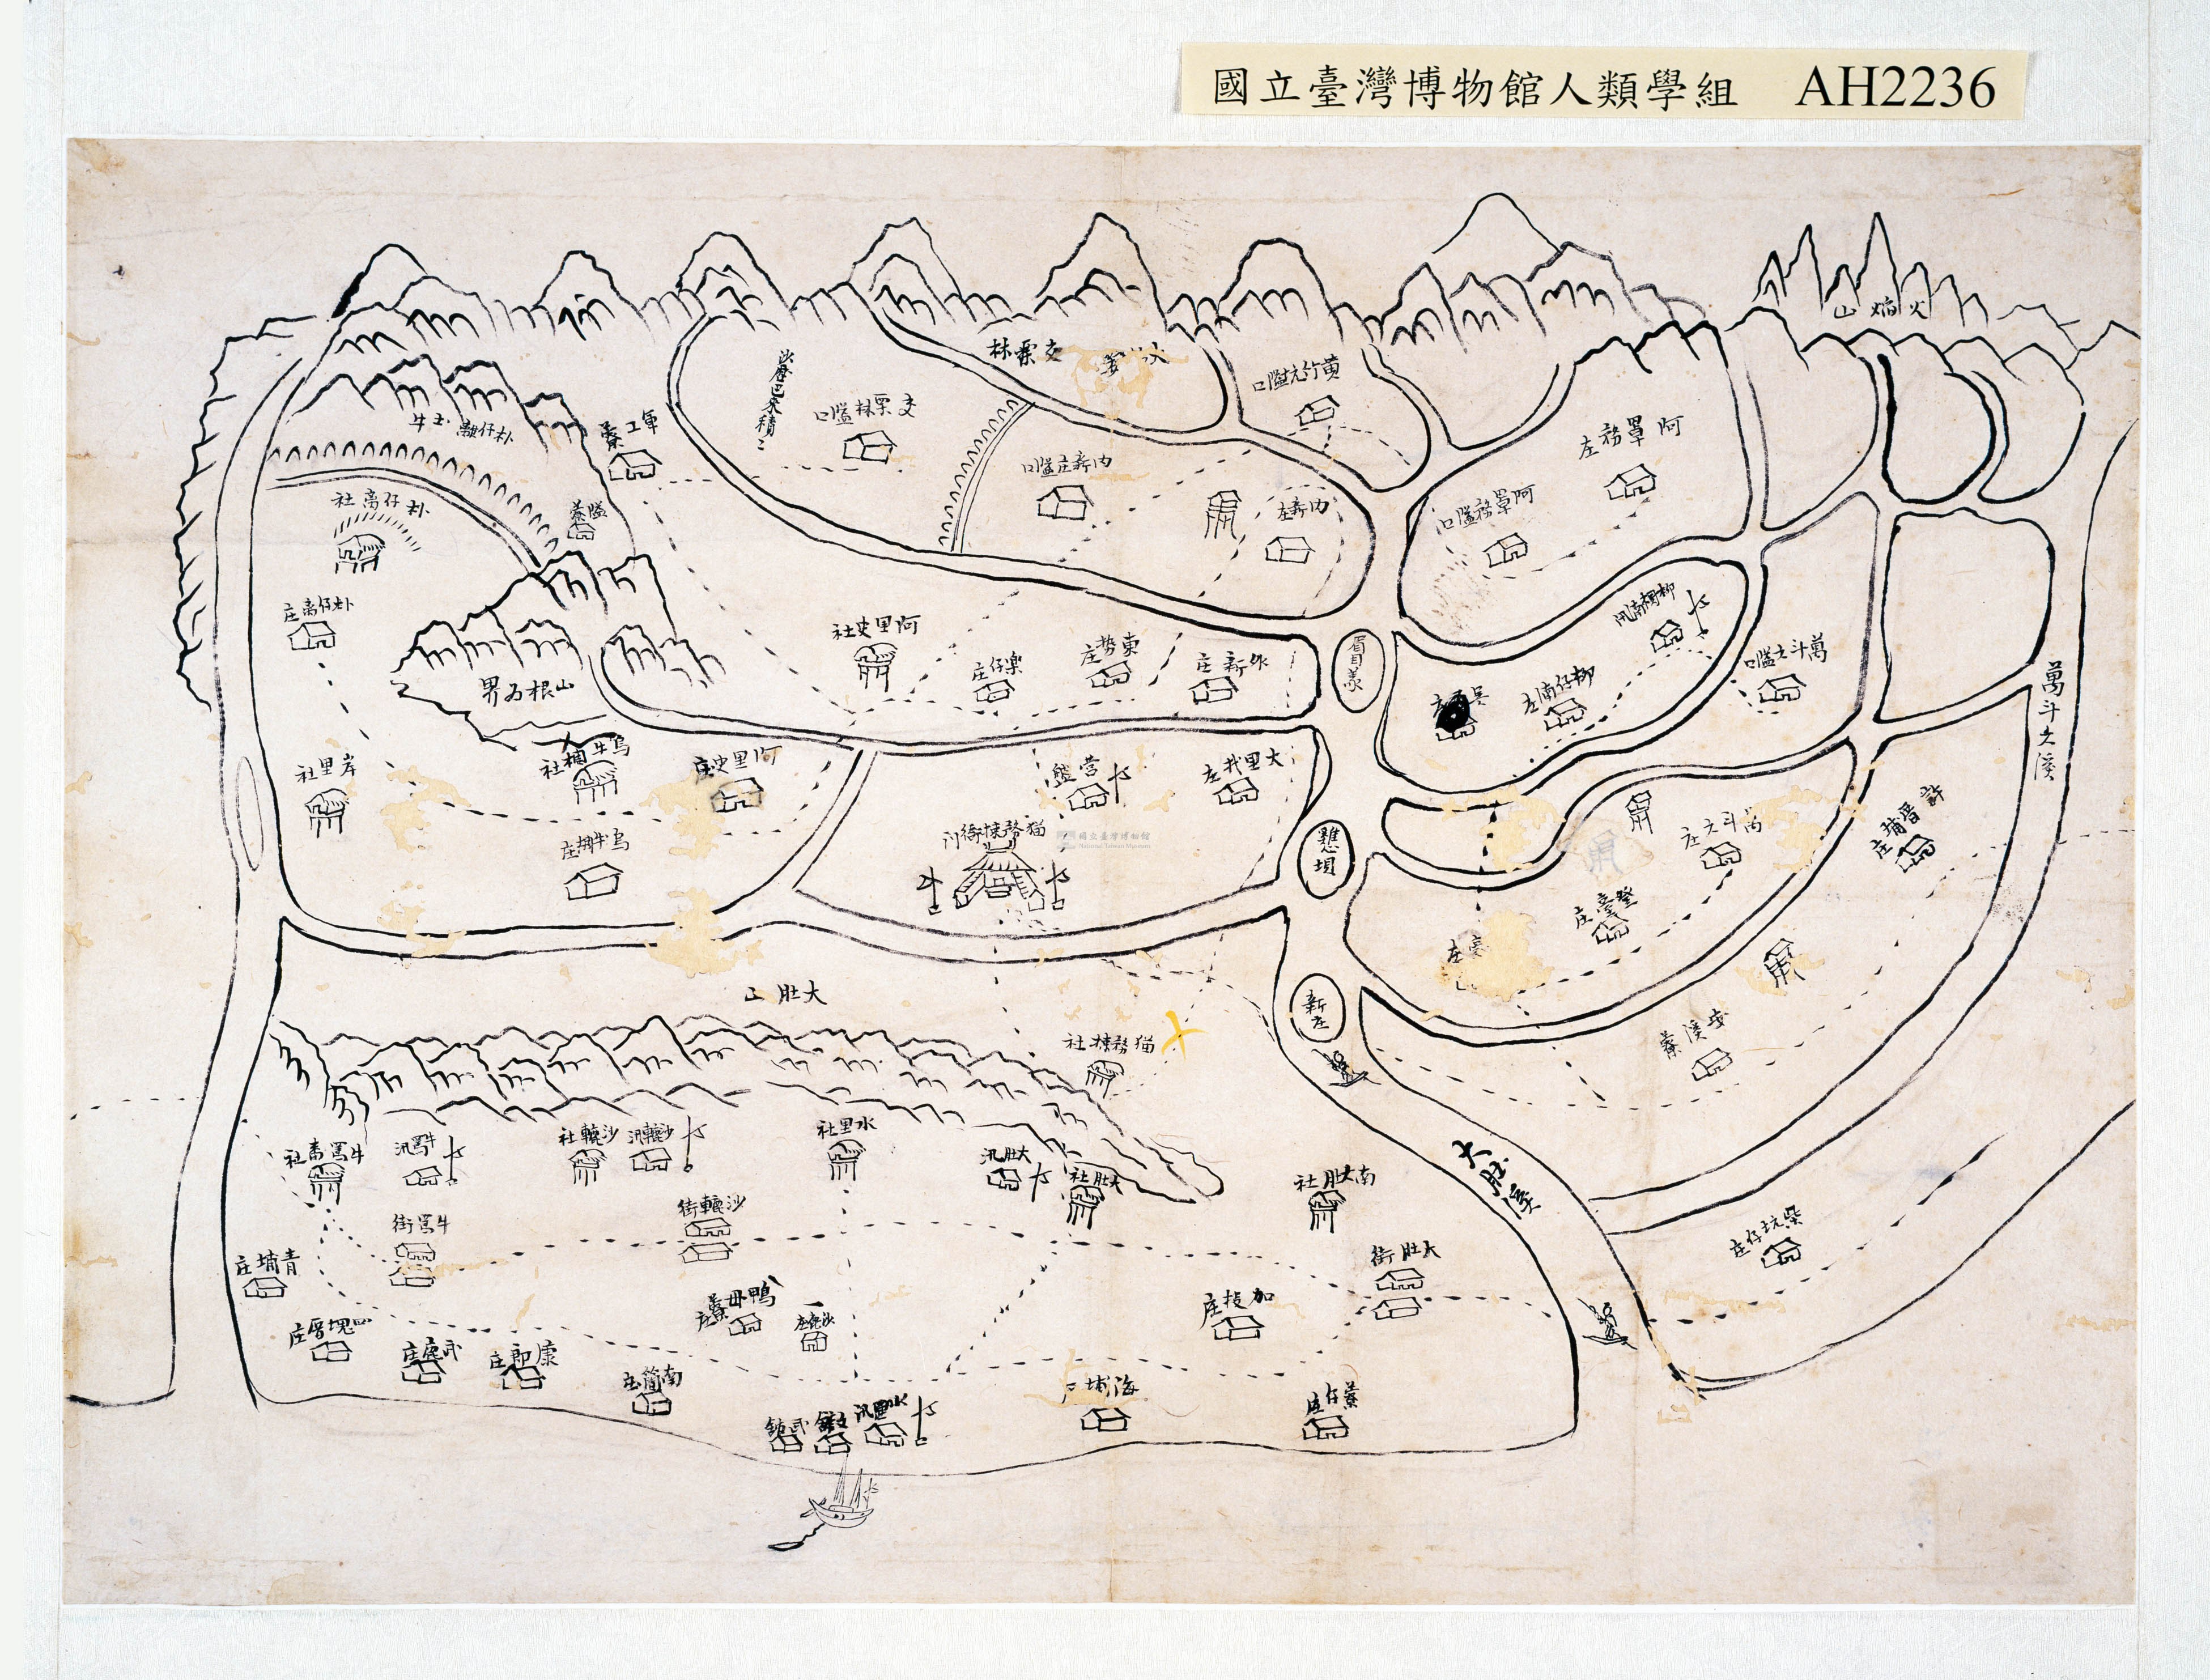 國立臺灣博物館人類學組 AH2236
火焰山
黃竹坑隘口
阿罩霧庄
阿罩霧隘口
沙歷巴來積
軍工藔
內新庄隘口
內新庄
朴仔離
土牛
隘藔
朴仔离社
朴仔离庄
山根為界
阿里史社
東勢庄
眉美
柳樹湳汛
柳仔湳庄
萬斗六隘口
萬斗六溪
岸里社
烏牛欄社
阿里史庄
營盤
大里杙庄
烏牛欄庄
猫務捒衙門
國立臺灣博物館
National Taiwan Museum
登臺庄
大肚山
猫務捒社
新庄
大肚溪
牛罵社
牛罵汛
沙轆社
沙轆汛
水里社
大肚汛
大肚社
南大肚社
牛罵街
沙轆街
大肚街
青埔庄
鴨母藔庄
加投庄
四塊厝庄
康郎庄
南簡庄
水里汛
海埔
藔仔庄